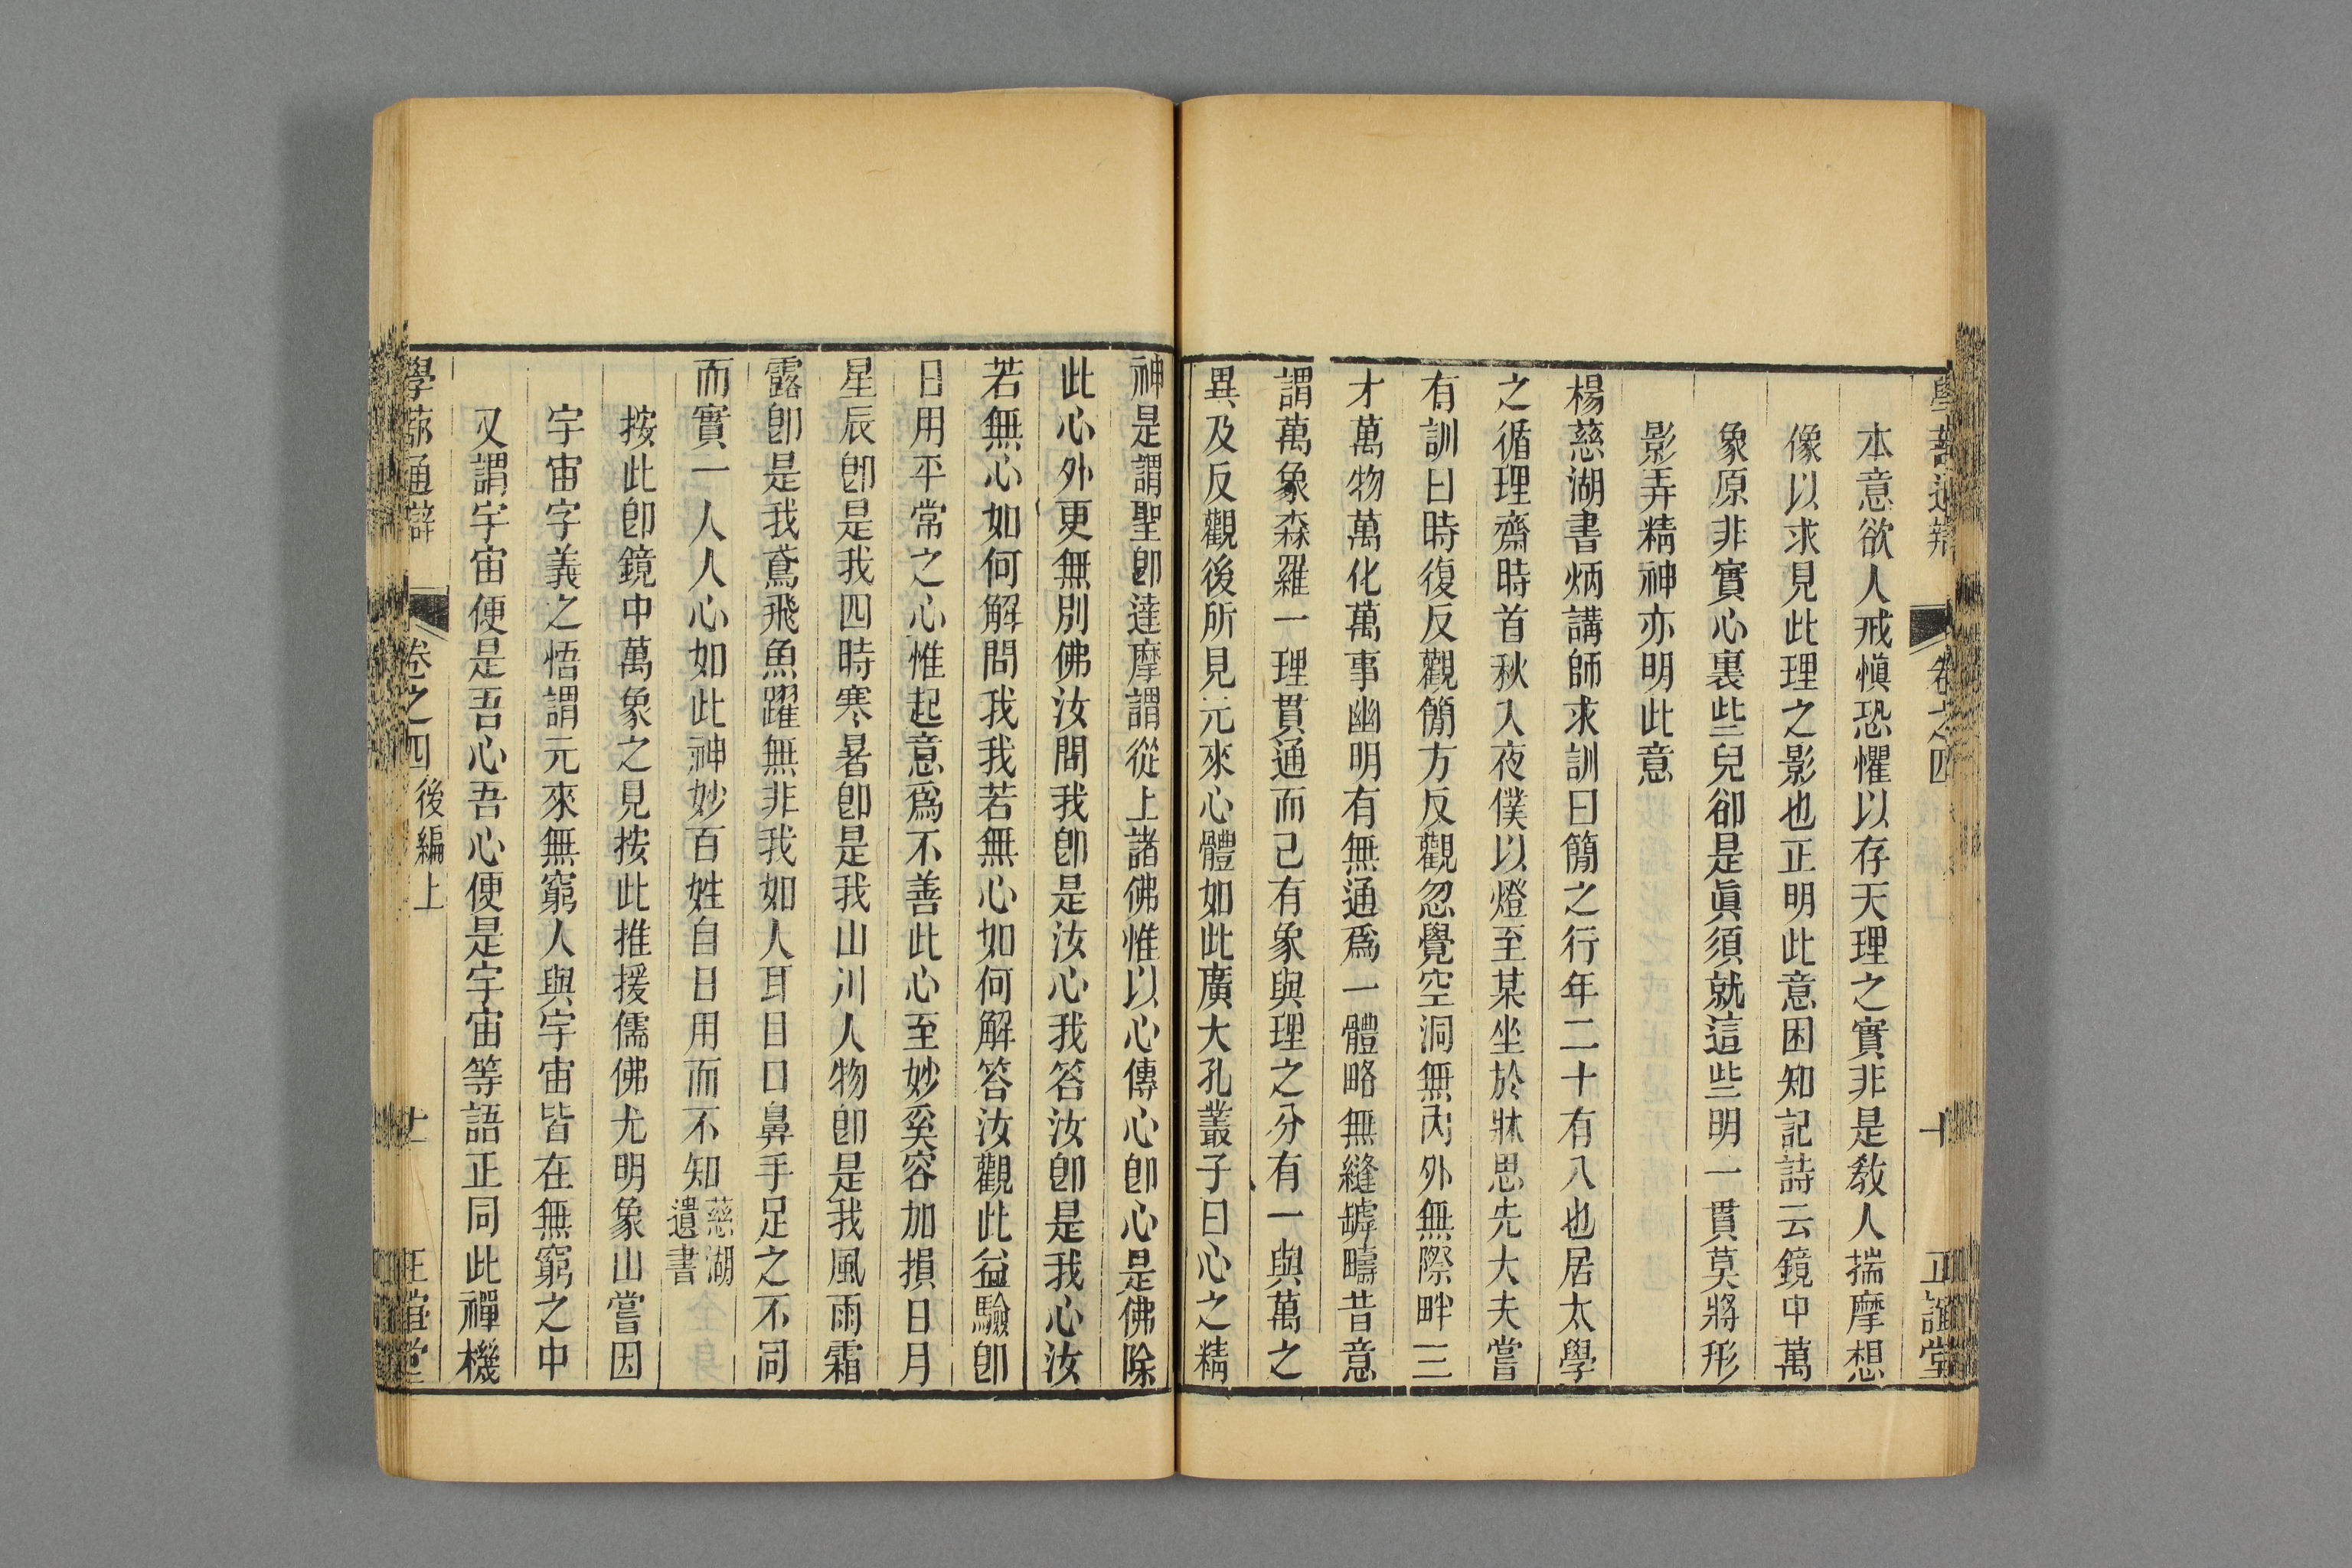 學蔀通辯 卷之四 十 正誼堂
本意欲人戒愼恐懼以存天理之實非是敎人揣摩想
像以求見此理之影也正明此意困知記詩云鏡中萬
象原非實心裏些兒卻是眞須就這些明一貫莫將形
影弄精神亦明此意
楊慈湖書炳講師求訓曰簡之行年二十有八也居太學
之循理齋時首秋入夜僕以燈至某坐於牀思先大夫嘗
有訓曰時復反觀簡方反觀忽覺空洞無內外無際畔三
才萬物萬化萬事幽明有無通爲一體略無縫罅疇昔意
謂萬象森羅一理貫通而已有象與理之分有一與萬之
異及反觀後所見元來心體如此廣大孔叢子曰心之精
神是謂聖卽達摩謂從上諸佛惟以心傳心卽心是佛除
此心外更無別佛汝問我卽是汝心我答汝卽是我心汝
若無心如何解問我我若無心如何解答汝觀此益驗卽
日用平常之心惟起意爲不善此心至妙奚容加損日月
星辰卽是我四時寒暑卽是我山川人物卽是我風雨霜
露卽是我鳶飛魚躍無非我如人耳目口鼻手足之不同
而實一人人心如此神妙百姓自日用而不知慈湖遺書
按此卽鏡中萬象之見按此推援儒佛尤明象山嘗因
宇宙字義之悟謂元來無窮人與宇宙皆在無窮之中
又謂宇宙便是吾心吾心便是宇宙等語正同此禪機
學蔀通辯 卷之四 後編上 十一 正誼堂